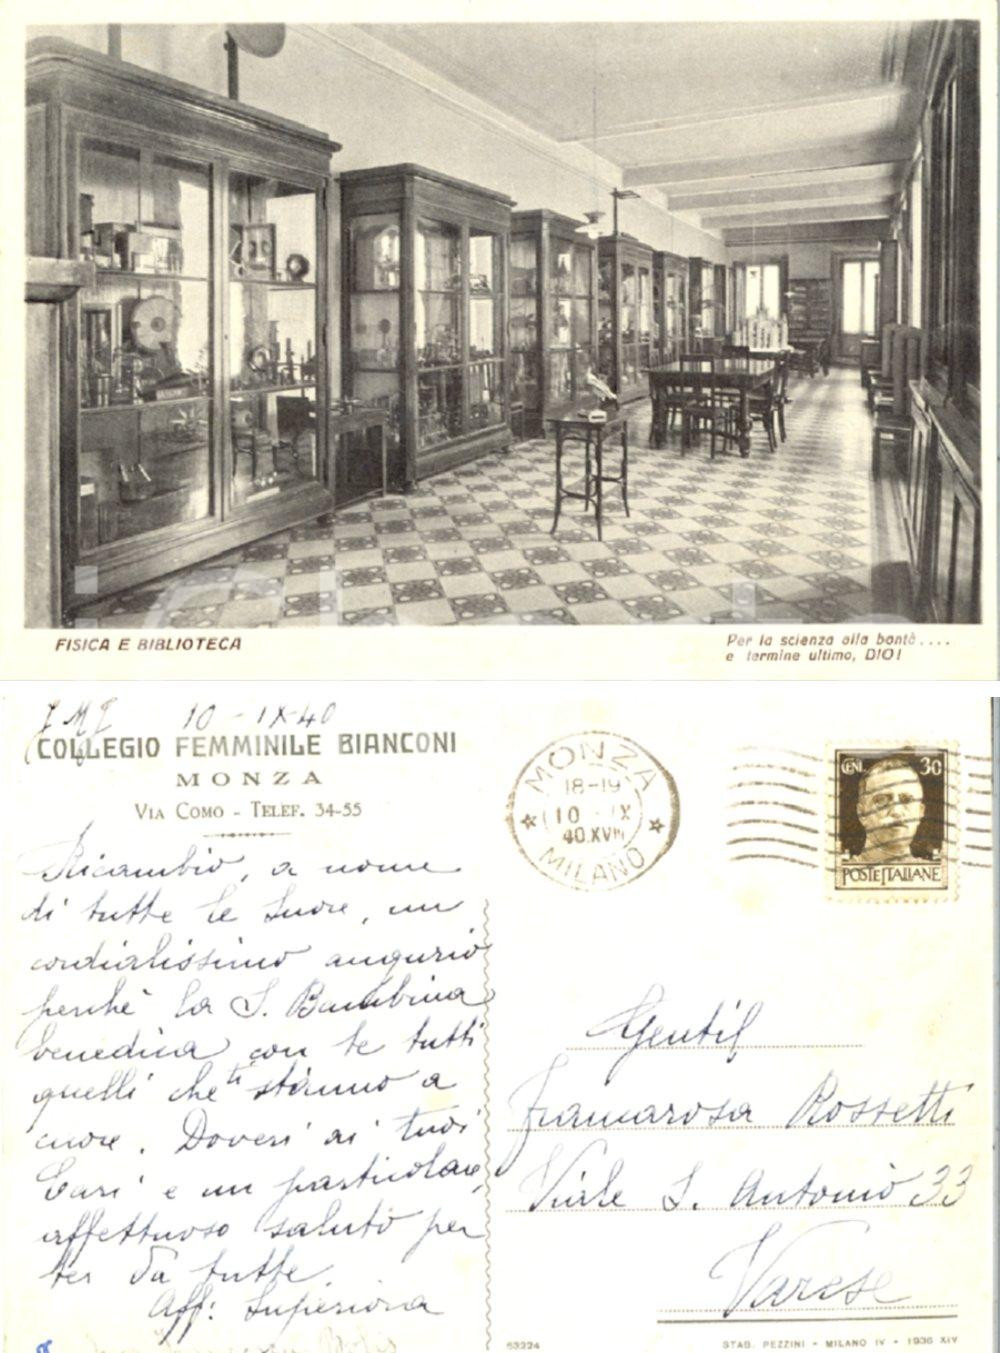 FISICA E BIBLIOTECA
Per la scienza alla bontà....
e termine ultimo, DIO!
10-IX-40
COLLEGIO FEMMINILE BIANCONI
MONZA
VIA COMO - TELEF. 34-55
Ricambio, a nome
di tutte le Suore, un
cordialissimo augurio
perchè la S. Bambina
benedica con te tutti
quelli che ti stanno a
cuore. Doveri ai tuoi
Cari e un particolare,
affettuoso saluto per
te, da tutte.
Aff: Superiora
MONZA
18-19
10 IX
40.XVIII
MILANO
CENT. 30
POSTE ITALIANE
Gentil
Franarosa Rossetti
Viale S. Antonio 33
Varese
53224
STAB. PEZZINI - MILANO IV - 1936 XIV